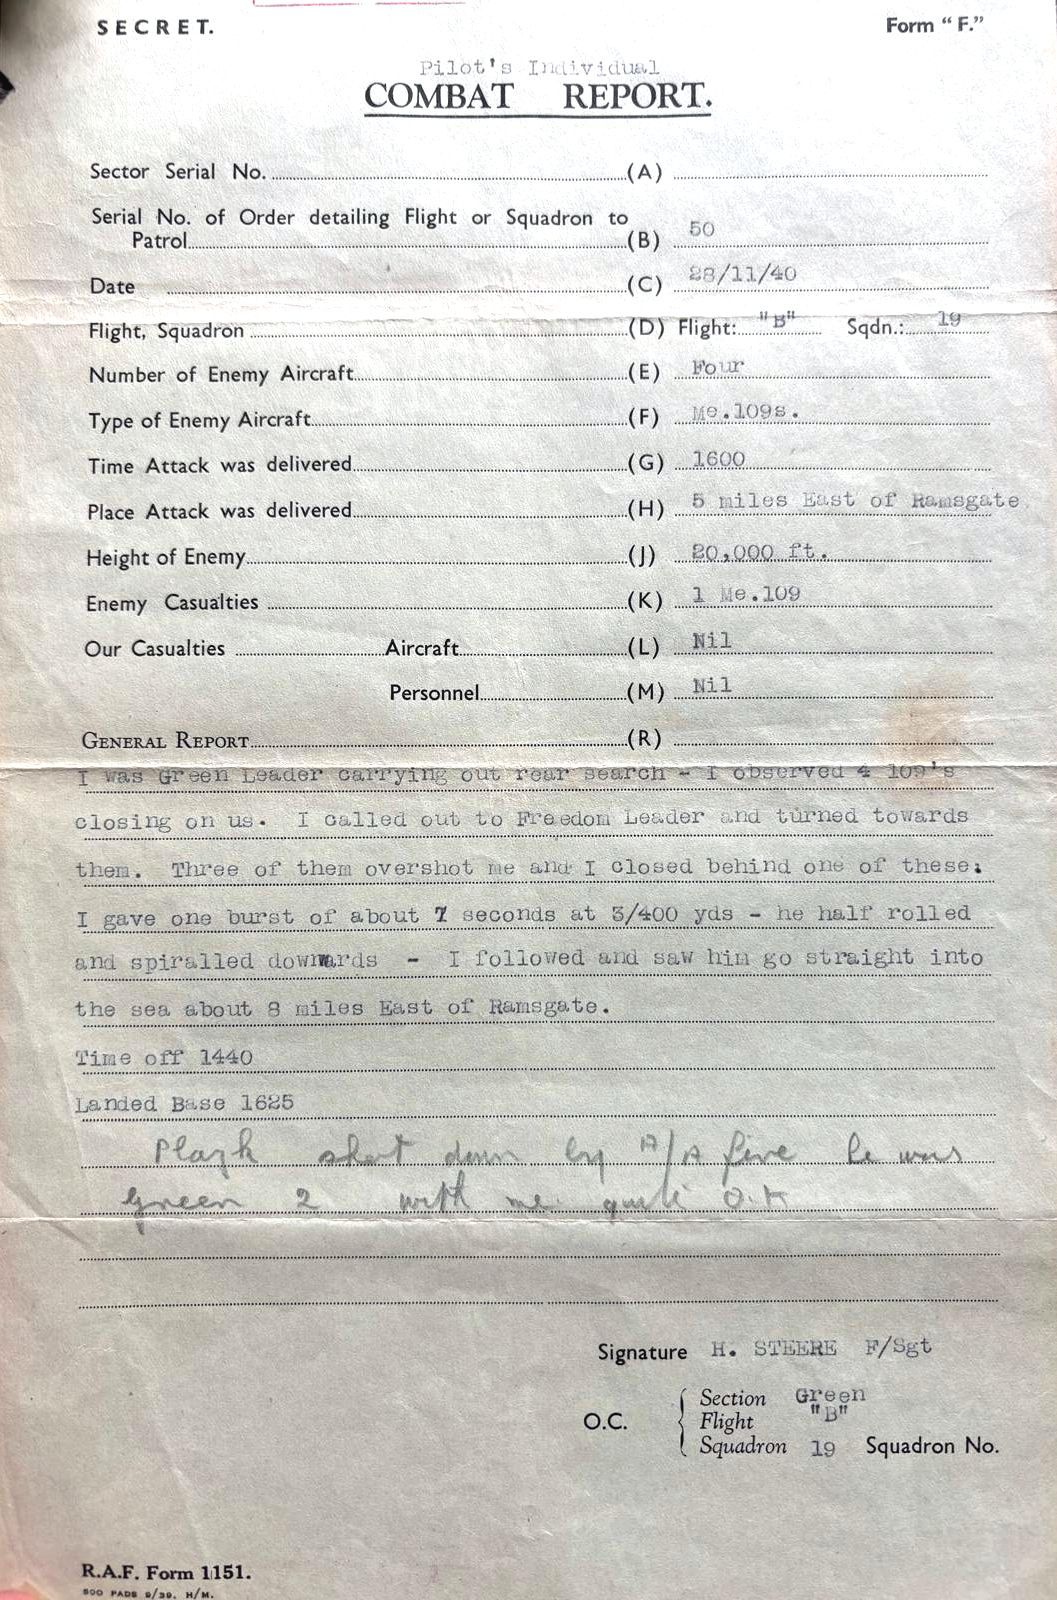 SECRET.
Form "F."
Pilot's Individual
COMBAT REPORT.
Sector Serial No. (A)
Serial No. of Order detailing Flight or Squadron to
Patrol (B) 50
Date (C) 28/11/40
Flight, Squadron (D) Flight: "B" Sqdn.: 19
Number of Enemy Aircraft (E) Four
Type of Enemy Aircraft (F) Me.109s.
Time Attack was delivered (G) 1600
Place Attack was delivered (H) 5 miles East of Ramsgate
Height of Enemy (J) 20,000 ft.
Enemy Casualties (K) 1 Me.109
Our Casualties Aircraft (L) Nil
Personnel (M) Nil
GENERAL REPORT (R)
I was Green Leader carrying out rear search - I observed 4 109's
closing on us. I called out to Freedom Leader and turned towards
them. Three of them overshot me and I closed behind one of these;
I gave one burst of about 7 seconds at 3/400 yds - he half rolled
and spiralled downwards - I followed and saw him go straight into
the sea about 8 miles East of Ramsgate.
Time off 1440
Landed Base 1625
shot down by A/A fire he was
green 2 with me quite O.K
Signature H. STEERE F/Sgt
O.C. Section Green
Flight "B"
Squadron 19 Squadron No.
R.A.F. Form 1151.
500 PADS 9/39. H/M.